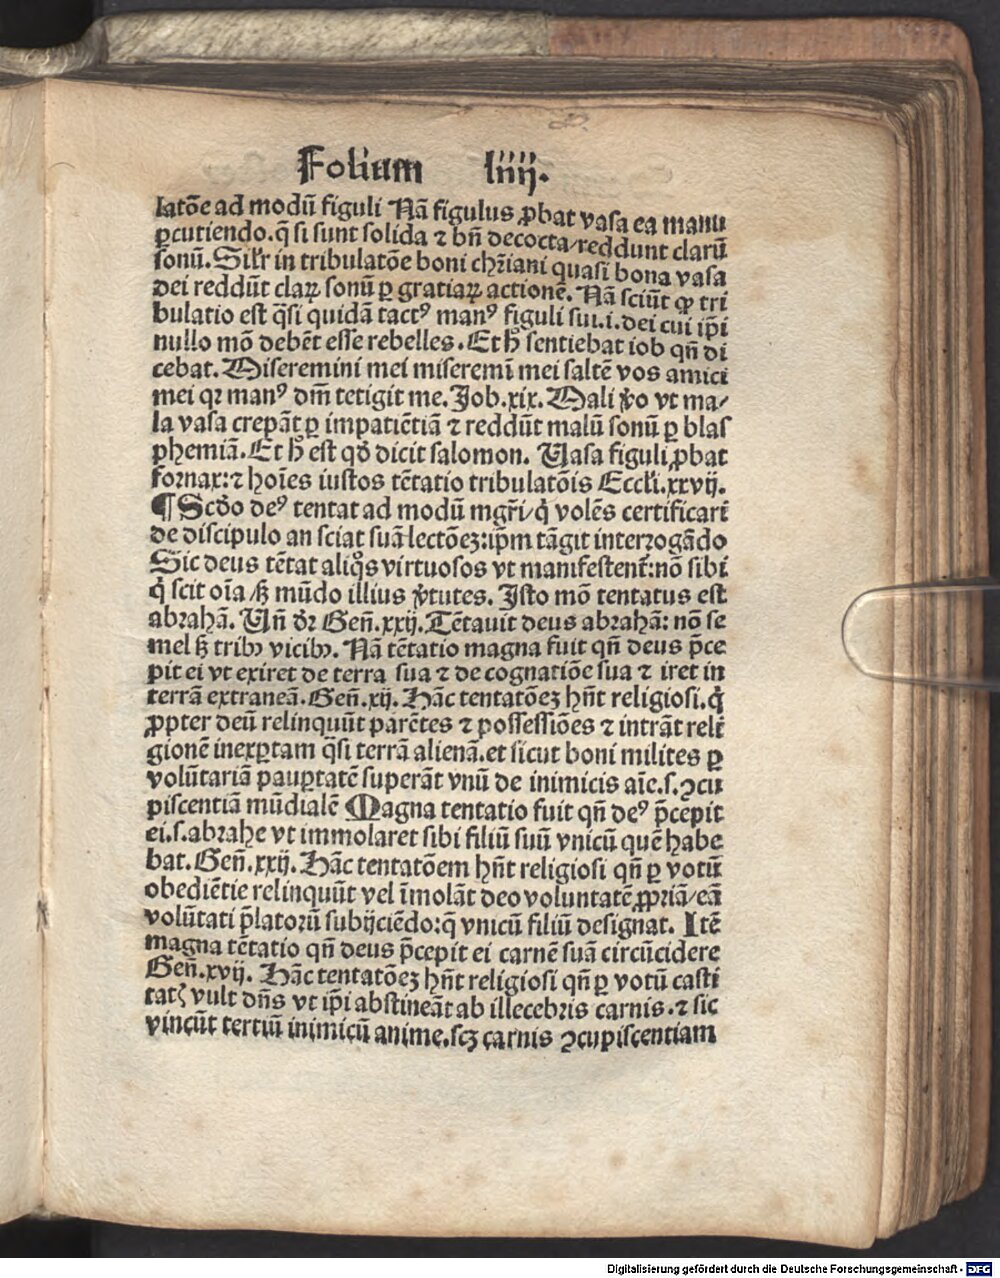 Folium liiij.
latōe ad modū figuli Nā figulus ꝓbat vasa ea manu
ꝑcutiendo.q̄ si sunt solida ⁊ bn̄ decocta/reddunt clarū
sonū. Silr̄ in tribulatōe boni chr̄iani quasi bona vasa
dei reddūt claꝝ sonū ꝑ gratiaꝝ actionē. Nā sciūt ꝙ tri
bulatio est q̄si quidā tactꝰ manꝰ figuli sui.i.dei cui ip̄i
nullo mō debēt esse rebelles. Et h̄ sentiebat iob qn̄ di
cebat. Miseremini mei miseremī mei saltē vos amici
mei qꝛ manꝰ dm̄ tetigit me. Job.xix. Mali v̓o vt ma/
la vasa crepāt ꝑ impatiētiā ⁊ reddūt malū sonū ꝑ blas
phemiā. Et h̄ est qd̓ dicit salomon. Vasa figuli ꝓbat
fornax:⁊ hoīes iustos tētatio tribulatōis Eccli.xxvij.
¶ Scd̓o deꝰ tentat ad modū mgr̄i/q̇ volēs certificari
de discipulo an sciat suā lectōeꝫ:ip̄m tāgit interrogādo
Sic deus tētat aliq̊s virtuosos vt manifestent̄:nō sibi
q̇ scit oīa/sꝫ mūdo illius v̓tutes. Isto mō tentatus est
abrahā. Vn̄ dr̄ Gen̄.xxij. Tētauit deus abrahā: nō se
mel sꝫ tribꝰ vicibꝰ. Nā tētatio magna fuit qn̄ deus p̄ce
pit ei vt exiret de terra sua ⁊ de cognatiōe sua ⁊ iret in
terrā extraneā. Gen̄.xij. Hāc tentatōeꝫ hn̄t religiosi.q̇
ꝓpter deū relinquūt parētes ⁊ possessiōes ⁊ intrāt reli
gionē inexꝑtam q̄si terrā alienā.et sicut boni milites ꝑ
volūtariā pauꝑtatē superāt vnū de inimicis aīe.s.ꝯcu
piscentiā mūdialē Magna tentatio fuit qn̄ deꝰ p̄cepit
ei.s.abrahe vt immolaret sibi filiū suū vnicū quē habe
bat. Gen̄.xxij. Hāc tentatōem hn̄t religiosi qn̄ ꝑ votū
obediētie relinquūt vel īmolāt deo voluntatē ꝓpriā/eā
volūtati p̄latorū subijciēdo:q̄ vnicū filiū designat. Itē
magna tētatio qn̄ deus p̄cepit ei carnē suā circūcidere
Gen̄.xvij. Hāc tentatōeꝫ hn̄t religiosi qn̄ ꝑ votū casti
tatꝭ vult dn̄s vt ip̄i abstineāt ab illecebris carnis.⁊ sic
vincūt tertiū inimicū anime.scꝫ carnis ꝯcupiscentiam
Digitalisierung gefördert durch die Deutsche Forschungsgemeinschaft - DFG